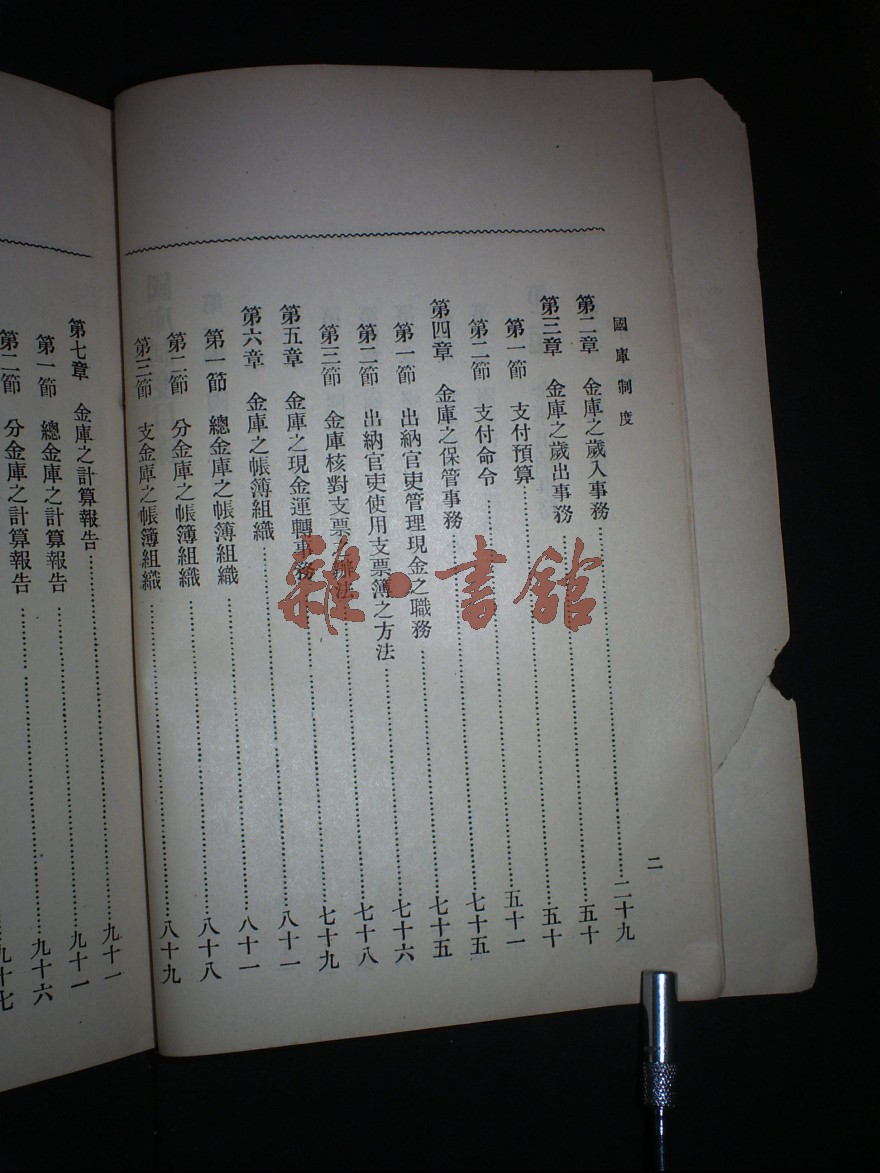 國庫制度
二
第二章 金庫之歲入事務……二十九
第三章 金庫之歲出事務……五十
第一節 支付預算……五十
第二節 支付命令……五十一
第四章 金庫之保管事務……七十五
第一節 出納官吏管理現金之職務……七十五
第二節 出納官吏使用支票簿之方法……七十六
第三節 金庫核對支票辦法……七十八
第五章 金庫之現金運轉事務……七十九
第六章 金庫之帳簿組織……八十一
第一節 總金庫之帳簿組織……八十一
第二節 分金庫之帳簿組織……八十八
第三節 支金庫之帳簿組織……八十九
第七章 金庫之計算報告……九十一
第一節 總金庫之計算報告……九十一
第二節 分金庫之計算報告……九十六
九十七
雜·書館